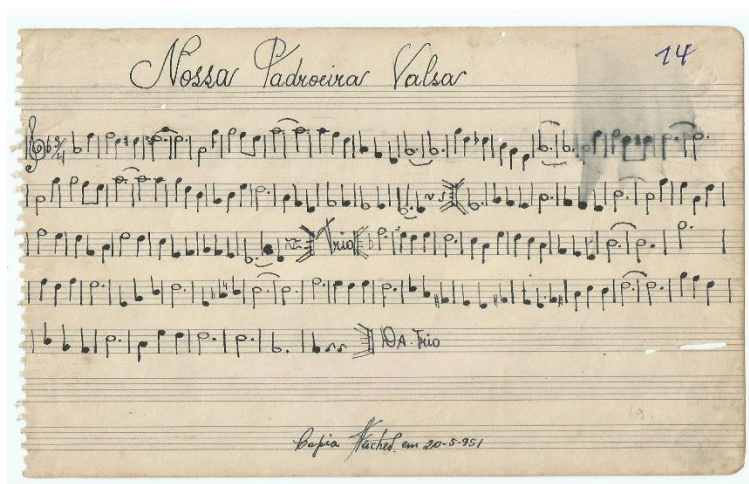 Nossa Padroeira Valsa
14
3/4
Trio
DA. Trio
Copia em 20-5-951